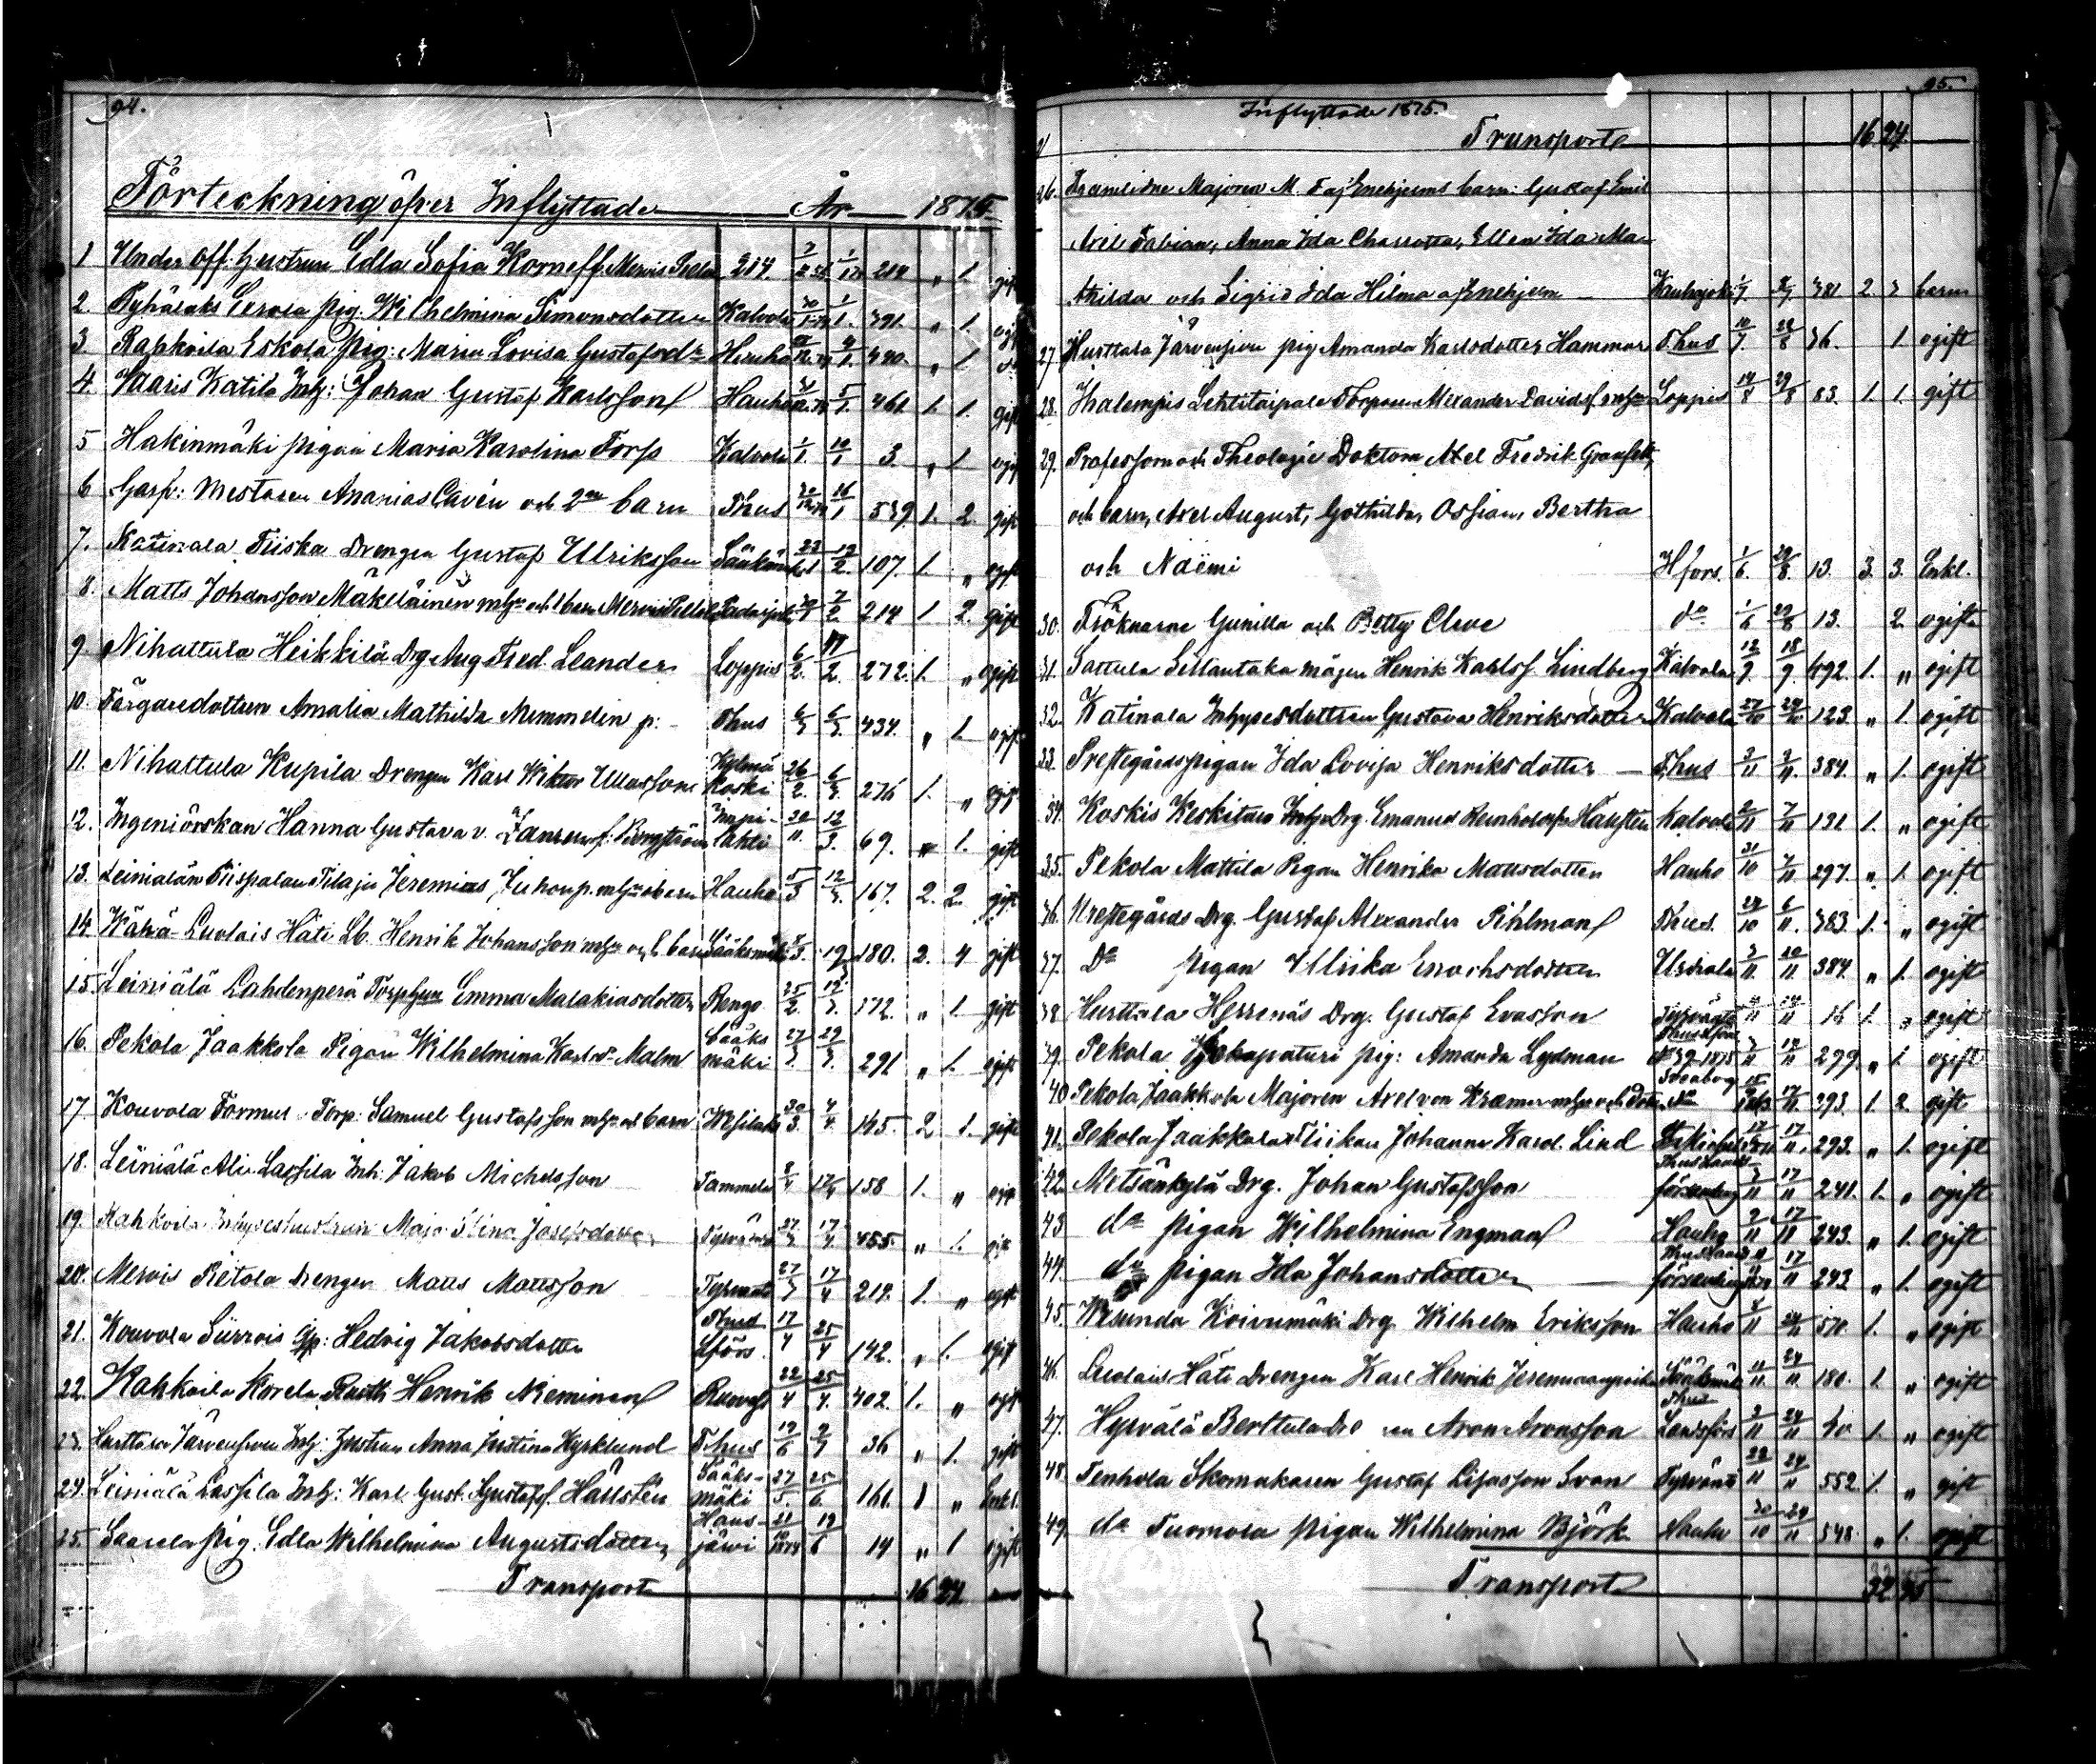 94.
Förteckning öfver Inflyttade År 1875.
1 Under Off: hustrun Edla Sofia Korneff Mervis Pellola 214 214 „ 1. gift
2. Pyhälaks Perola pig. Wilhelmina Simonsdotter Kalvola 391. „ 1. ogift
3 Rahkoila Eskola pig: Maria Lovisa Gustafsdr Hauho 420. „ 1
4. Waaris Katila Inh: Johan Gustaf Karlsson Hauho 5/1. 461. 1. 1. gift
5 Hakinmäki pigan Maria Karolina Torp Kalvola 1/1. 10/1 3 „ 1 ogift
6 Garfv: mestaren Ananias Cavén och 2ne barn Thus 16/1 539 1. 2. gift
7. Katinala Tiiska Drengen Gustaf Ulriksson 12/2. 107. 1. „ ogift
8. Matts Johansson Mäkeläinen mhu och 1 barn Mervis Pellola Padasjoki 7/2 214 1 2. gift
9. Nihattula Heikkilä Drg Aug Fred. Leander Loppis 6/2. 17/2. 272. 1. „ ogift
10. Färgaredottren Amalia Mathilda Nummelin p: Thus 6/3 6/3. 434. „ 1. ogift
11. Nihattula Kupila Drengen Karl Wiktor Ullasson Kylmä
koski 26/2. 6/3. 276 1. „ ogift
12. Ingeniörskan Hanna Gustava v. Jansson f: Bergström Impi-
lahti 30/11. 12/3. 69. „ 1. gift
13. Leiniälän Piispalan Tilaja Jeremias Juhonp. mhu o barn Hauho 5/3 12/3. 167. 2. 2. gift
14. Kähä-Luolais Häti Lb. Henrik Johansson mhu och 1 barn Sääksmäki 19 180. 2. 4 gift
15. Leiniälä Lahdenperä Torphus Emma Malakiasdotter Rengo 25/2. 19/3. 172. „ 1 gift
16. Pekola Jaakkola Pigan Wilhelmina Karlsdr Malm Sääks
mäki 27/3. 29/3. 291 „ 1. ogift
17 Kouvola Formus Torp: Samuel Gustafsson mhu o barn Wesilaks 30/3. 4/4. 145. 2 1. gift
18. Leiniälä Ali Lassila Inh: Jakob Michelsson Tammela 8/4 17/4 158 1. „ ogift
19. Rahkoila Inhyseshustrun Maja Stina Josefsdotter Tyrväntö 27/3 17/4. 455. „ 1. gift
20. Mervis Pietola Drengen Matts Mattsson Tyrväntö 27/3 17/4 219. 1. „ ogift
21. Kouvola Siirrois Hedvig Jakobsdotter Thus
Lförs. 17/4 25/4 142. „ 1. ogift
22. Rahkoila Korela Henrik Nieminen Ruovesi 22/4 25/4. 402. 1. „ ogift
23. Hurttala Järvensivu Inh: hustrun Anna Justina Kyrklund Thus 19/6 2/7 36 „ 1. gift
24. Leiniälä Lassila Inh: Karl Gust. Gustafsf. Hallstén Sääks-
mäki 27/5. 25/6 161. 1 „ Enkl.
25. Saarela pig. Edla Wilhelmina Augustsdotter Haus-
järvi 19/6 14 „ 1 ogift
Transport 16 24
95.
Inflyttade 1875.
Transport 16 24.
26. Framlidne Majoren M. Enehjelms barn: Gustaf Emil
Axel Fabian, Anna Ida Charlotta, Ellen Ida Ma-
thilda och Sigrid Ida Hilma af Enehjelm Kauhajoki 381 2. 3 barn
27 Hurttala Järvensivu pig Amanda Karlsdotter Hammar Thus 28/8 36. 1 ogift
28. Ihalempis Lehtitaipale Torparen Alexander Davidsf mhu Loppis 14/8 29/8 83. 1. 1. gift
29. Professorn och Theologie Doktorn Axel Fredrik Granfelt,
och barn, Axel August, Gothilda, Ossian, Bertha
och Naëmi Hfors. 1/6. 29/8. 13. 3. 3. Enkl.
30. Fröknarne Gunilla och Betty Cleve do 1/6 29/8 13. 2. ogifta
31. Sattula Sillantaka mågen Henrik Karlsf. Lindberg Kalvola 12/9. 18/9. 492. 1. „ ogift
32. Katinala Inhysesdottren Gustava Henriksdotter Kalvola 27/10 29/10 123. „ 1. ogift
33. Prestegårdspigan Ida Lovisa Henriksdotter Thus 3/11 3/11. 384. „ 1. ogift
34. Koskis Keskitalo Drg. Emanuel Reinholdsf. Kalvola 2/11 7/11 131 1. „ ogift
35. Pekola Mattila Pigan Henrika Mattsdotter Hauho 31/10 7/11. 297. „ 1. ogift
36. Prestegårds Drg. Gustaf Alexander Pihlman Thus. 29/10 6/11. 383. 1. „ ogift
37. Do pigan Ullrika Enochsdotter Urdiala 3/11. 10/11 384. „ 1. ogift
38 Hurttala Herrenäs Drg. Gustaf Evasson Tyrväntö 14/11 16 1. „ ogift
39. Pekola pig: Amanda Lydman 299 „ 1. ogift
40 Pekola Jaakkola Majoren Axel von Kræmer mhu och dotter Sveaborg 17/11. 293. 1. 2. gift
41. Pekola Jaakkola Piikan Johanna Karol. Lind 17/11. 293. „ 1. ogift
42. Metsänkylä Drg. Johan Gustafsson Thus Lands
församling 17/11 241. 1. „ ogift
43 do pigan Wilhelmina Engman Hauho 17/11 243. „ 1. ogift
44. do pigan Ida Johansdotter Thus Lands
församling 17/11 243 „ 1. ogift
45. Wisunda Koivumäki Drg. Wilhelm Eriksson Hauho 24/11 570. 1. „ ogift
46. Luolais Häti Drengen Karl Henrik Jeremiaanpoika Sääksmäki 11/11. 24/11. 180. 1. „ ogift
47. Hyrvälä Berttula Aron Aronsson Thus
Landsförs 24/11 40 1. „ ogift
48. Tenhola Skomakaren Gustaf Lisasson Svan Tyrväntö 22/11 24/11 552. 1. „ gift
49. do Tuomola pigan Wilhelmina Björk Hauho 30/10 24/11 548. „ 1. ogift
Transport 32 45